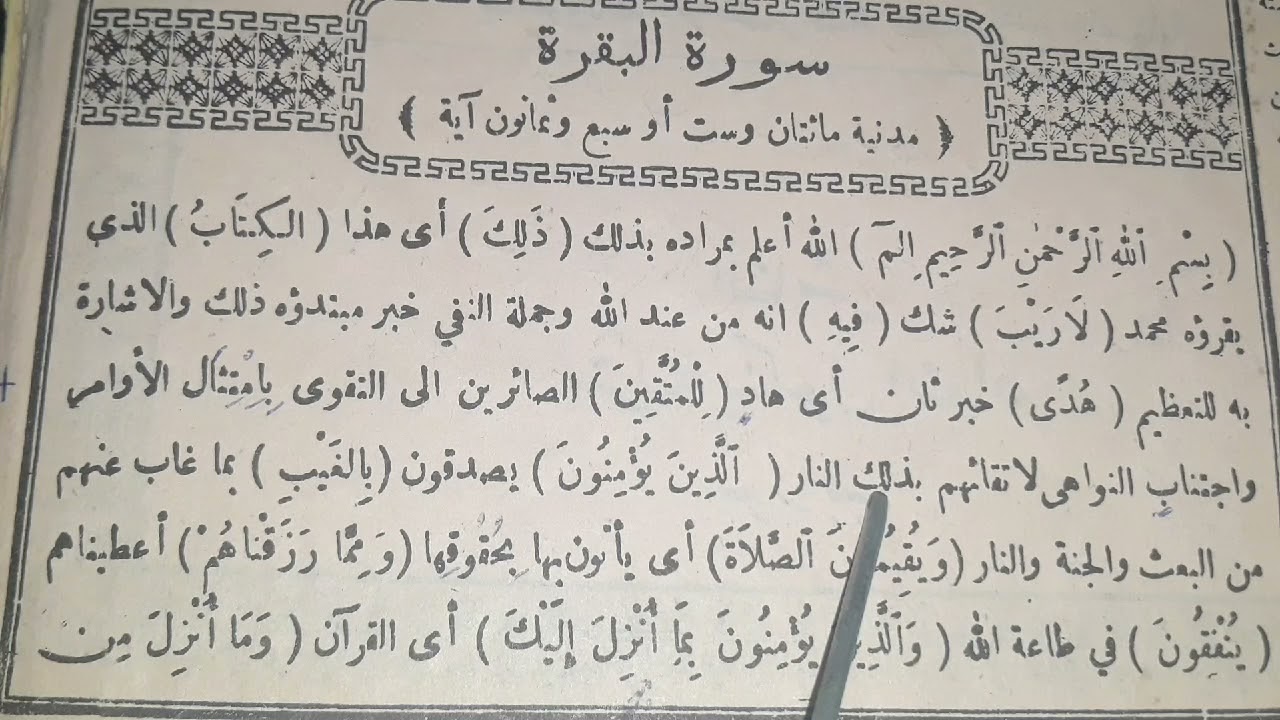 سورة البقرة
﴿ مدنية مائتان وست أو سبع وثمانون آية ﴾
( بِسْمِ ٱللهِ ٱلرَّحْمٰنِ ٱلرَّحِيمِ الٓمٓ ) الله أعلم بمراده بذلك ( ذَلِكَ ) أى هذا ( الْكِتَابُ ) الذي
يقرؤه محمد ( لَا رَيْبَ ) شك ( فِيهِ ) انه من عند الله وجملة النفي خبر مبتدؤه ذلك والاشارة
به للتعظيم ( هُدًى ) خبر ثان أى هادٍ ( لِلْمُتَّقِينَ ) الصائرين الى التقوى بِامْتِثَالِ الأوامر
واجتنابِ النواهى لاتقائهم بذلك النار ( ٱلَّذِينَ يُؤْمِنُونَ ) يصدقون ( بِالْغَيْبِ ) بما غاب عنهم
من البعث والجنة والنار ( وَيُقِيمُونَ ٱلصَّلَاةَ ) أى يأتون بها بِحُقُوقِهَا ( وَمِمَّا رَزَقْنَاهُمْ ) أعطيناهم
( يُنْفِقُونَ ) في طاعة الله ( وَٱلَّذِينَ يُؤْمِنُونَ بِمَا أُنْزِلَ إِلَيْكَ ) أى القرآن ( وَمَا أُنْزِلَ مِن